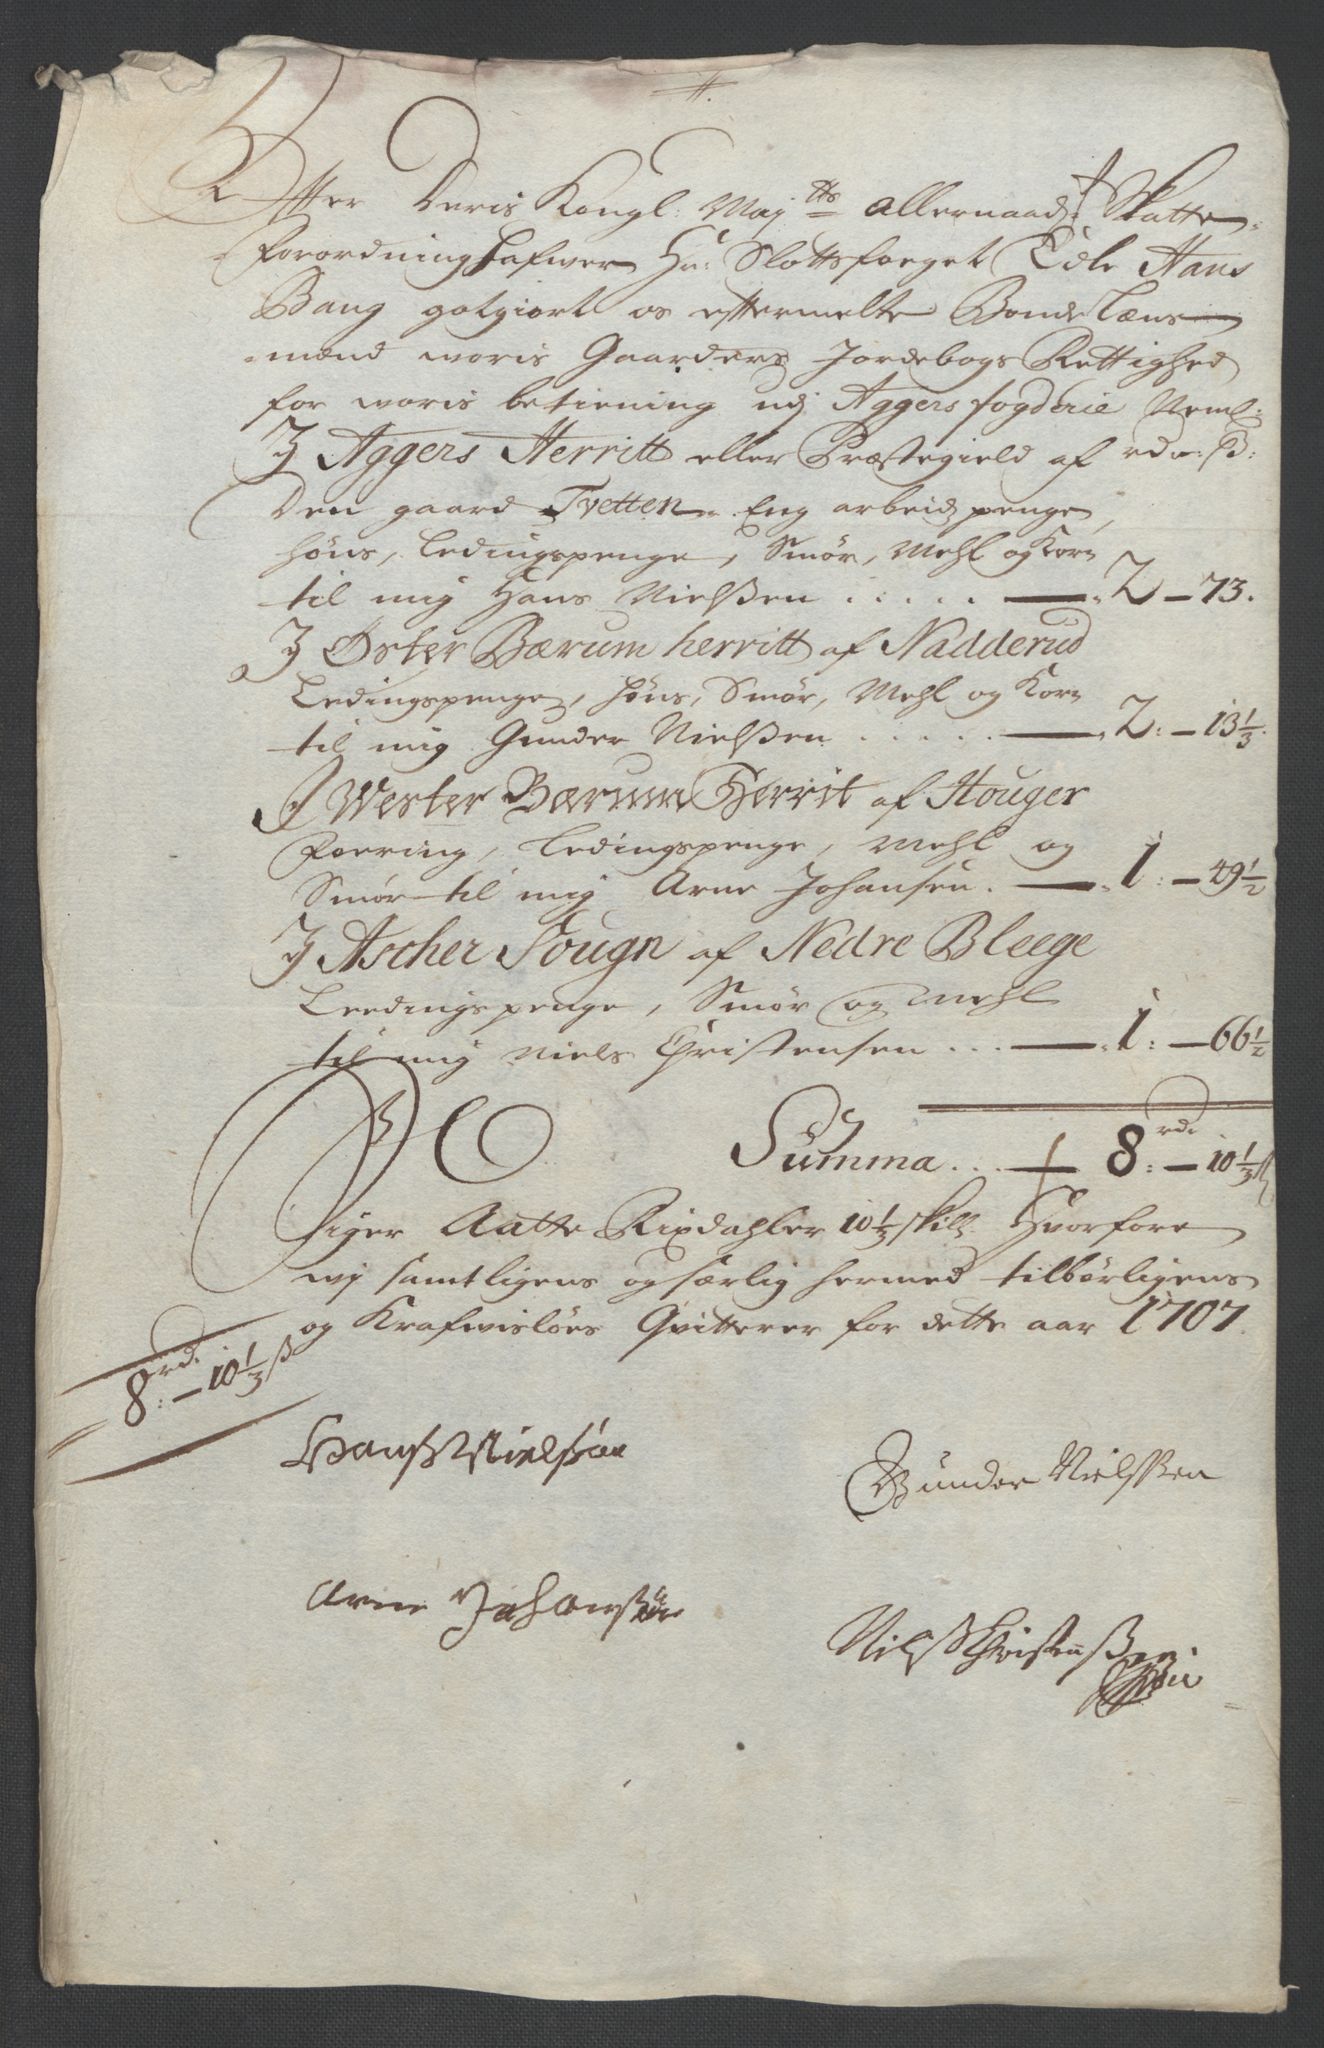 Effter Deris Kongl: Maj:tts allernaad: Skatte-
forordning hafwer Hr: Slottsfoeget Edle Hans
Bang gotgiort os effermelte Bonde Læns-
mænd woris Gaarders Jordebogs Rettighed
for woris betiening udj Aggers fogderie Neml:
J Aggers Herritt eller Præstegield af rd.: ß:
Den gaard Tvetten. Eng arbeidspenge,
høns, Ledingspenge, Smør, Mehl og Korn
til mig Hans Nielßen ..... 2 – 73.
J Øster Bærum herritt af Nadderud
Ledingspenge, høns, Smør, Mehl og Korn
til mig Gunder Nielßen ..... 2: – 13 1/3.
J Wester Bærum Herrit af Houger
Foering, Ledingspenge, Mehl og
Smør til mig Arne Johansen. 1: – 49 1/2
J Ascher Sougn af Nedre Bleege
Leedingspenge, Smør og Mehl
til mig Niels Christensen ... 1: – 66 1/2
Summa ... 8 rd: – 10 1/3 ß
siger Aatte Rixdahler 10 1/3 skill. Hvorfore
wj samtligens og særlig hermed tilbørligens
og Krafwisløes Qvitterer for dette aar 1707.
8 rd: – 10 1/3 ß
Hanß Nielßøn
Gunder Nielßen
Arne Johanßøn
Nilß Christenßen